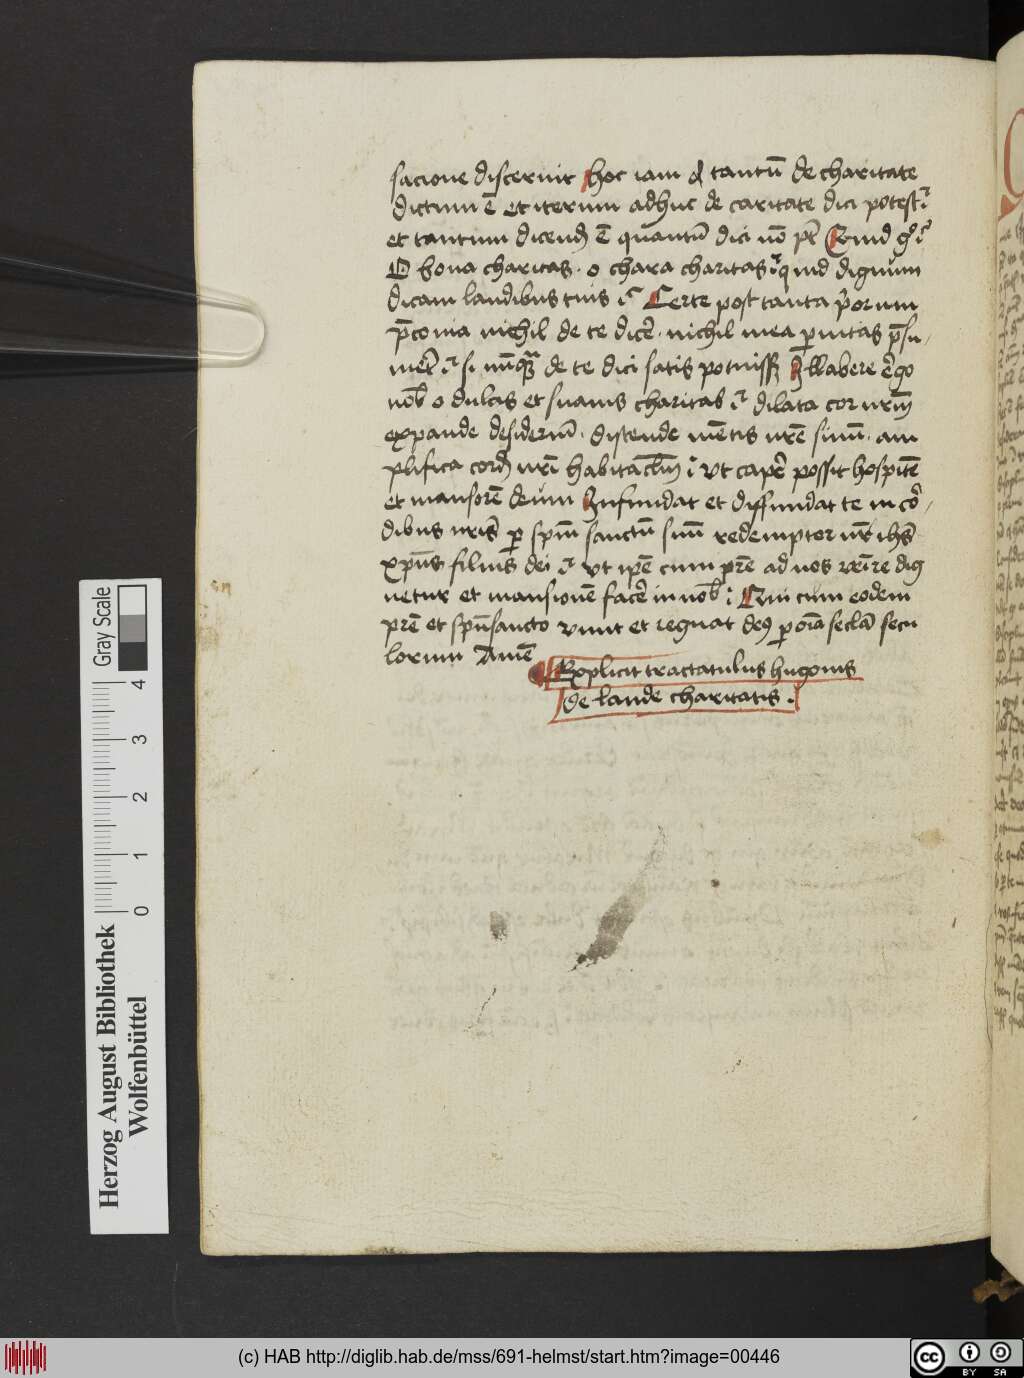 sacione discernit hoc iam q̄ tantū de charitate
dictum ē et iterum adhuc de caritate dici potest
et tantum dicend ē quantū dici nō pt̄ Quid g°
O bona charitas · o chara charitas quid dignum
dicam laudibus tuis Certe post tanta p̄corum
p̄conia nichil de te dicē · nichil mea puitas p̄su
si nūq de te dici satis potuiss Illabere ergo
nob o dulcis et suauis charitas dilata cor nrm̄
expande desideriū · distende mētis nrē sinū · am
plifica cord nrī habitaclm̄ ut capē possit hospitē
et mansorē deum Infundat et diffundat te in cor
dibus nris̄ p spm̄ sanctū suū redemptor nr̄ ihs̄
xpūs filius dei ut ipē cum prē ad nos venire dig
netur et mansionē facē in nob Qui cum eodem
prē et spū sancto viuit et regnat de9 p oīa seclā secu
lorum Amē
Explicit tractatulus hugonis
de laude charitatis .
Gray Scale
0 1 2 3 4
Herzog August Bibliothek
Wolfenbüttel
(c) HAB http://diglib.hab.de/mss/691-helmst/start.htm?image=00446
cc
BY SA